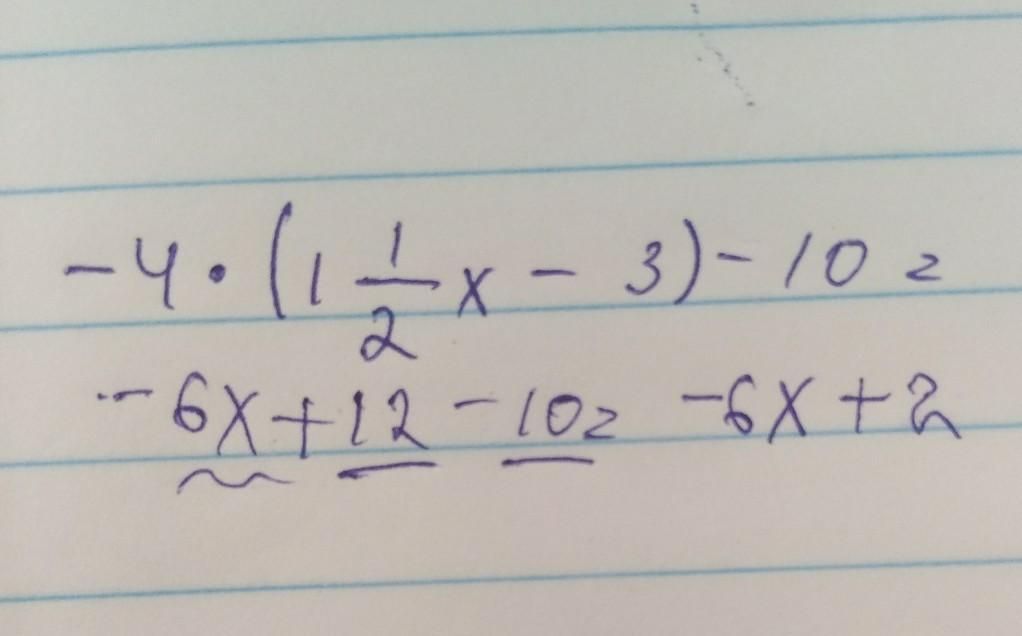 -4 · (1 1/2 x - 3) - 10 =
- 6x + 12 - 10 = -6x + 2